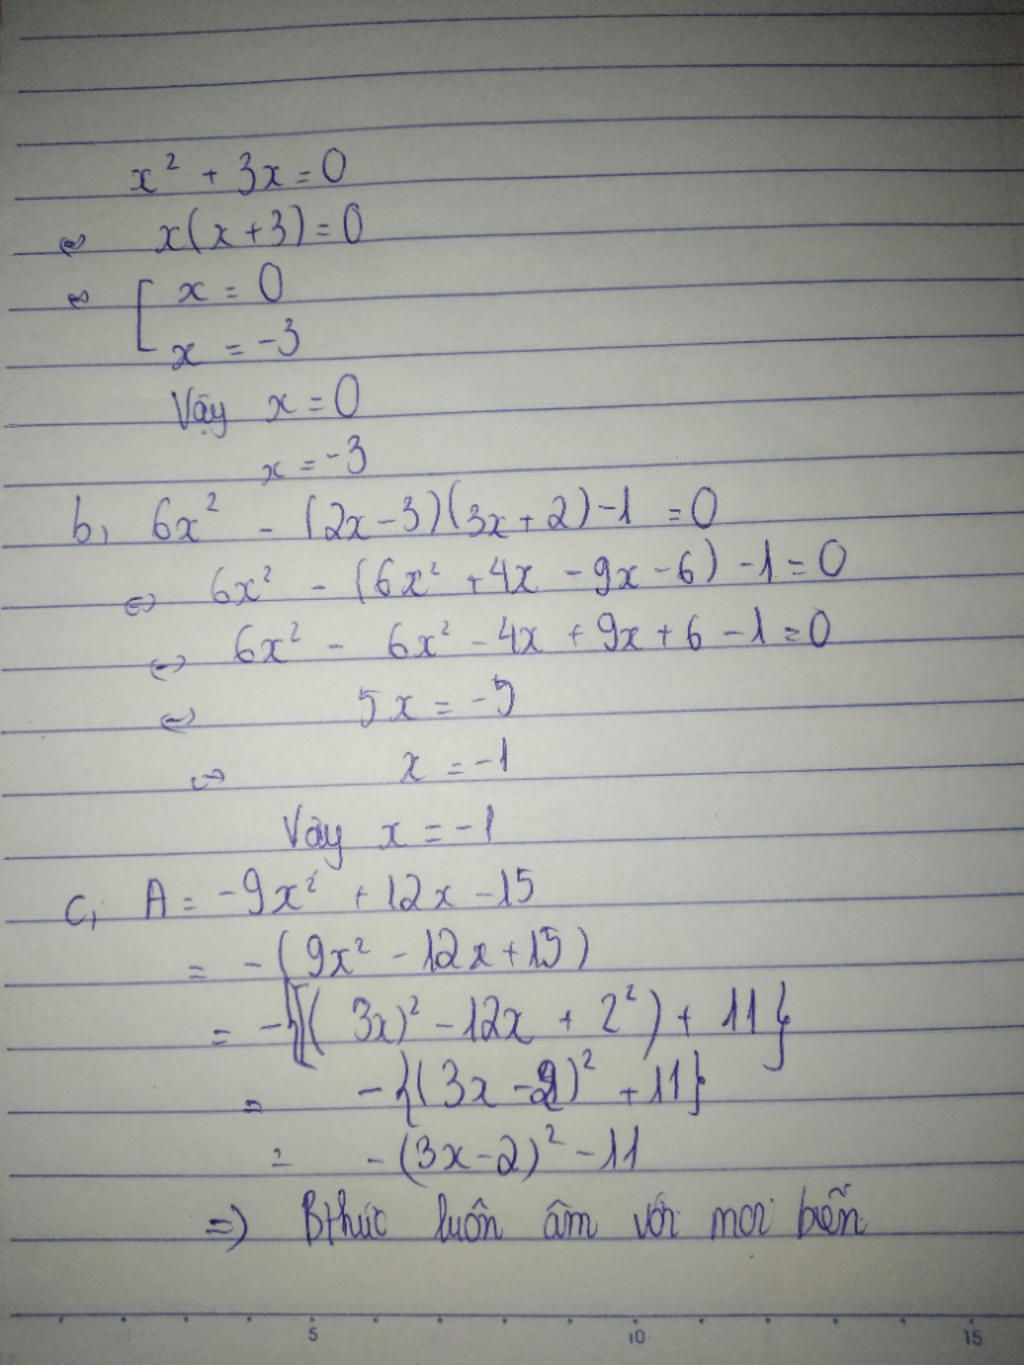 x² + 3x = 0
⇔ x(x+3) = 0
⇔ [ x = 0
x = -3
Vậy x = 0
x = -3
b, 6x² - (2x-3)(3x+2)-1 = 0
⇔ 6x² - (6x² + 4x - 9x - 6) - 1 = 0
⇔ 6x² - 6x² - 4x + 9x + 6 - 1 = 0
⇔ 5x = -5
⇔ x = -1
Vậy x = -1
c, A = -9x² + 12x - 15
= -(9x² - 12x + 15)
= -{[(3x)² - 12x + 2²) + 11}
= -{(3x-2)² + 11}
= -(3x-2)² - 11
=> Bthức luôn âm với mọi biến
5 10 15